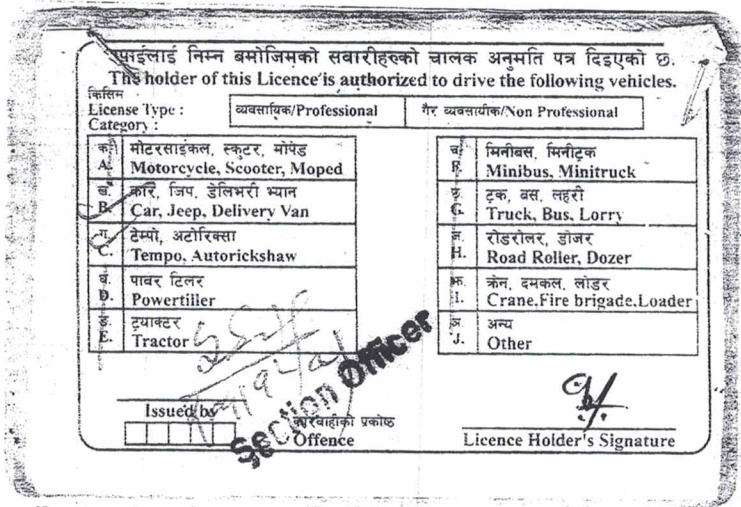 पाईलाई निम्न बमोजिमको सवारीहरुको चालक अनुमति पत्र दिइएको छ.
The holder of this Licence is authorized to drive the following vehicles.
किसिम
License Type : व्यवसायिक/Professional गैर व्यवसायीक/Non Professional
Category :
क. मोटरसाईकल, स्कुटर, मोपेड
A. Motorcycle, Scooter, Moped
ख. कार, जिप, डेलिभरी भ्यान
B. Car, Jeep, Delivery Van
ग. टेम्पो, अटोरिक्सा
C. Tempo, Autorickshaw
घ. पावर टिलर
D. Powertiller
ङ. ट्रयाक्टर
E. Tractor
च. मिनीबस, मिनीट्रक
F. Minibus, Minitruck
छ. ट्रक, बस, लहरी
G. Truck, Bus, Lorry
ज. रोडरोलर, डोजर
H. Road Roller, Dozer
झ. क्रेन, दमकल, लोडर
I. Crane,Fire brigade,Loader
ञ. अन्य
J. Other
Section Officer
Issued by
कारवाहीको प्रकोष्ठ
Offence
Licence Holder's Signature